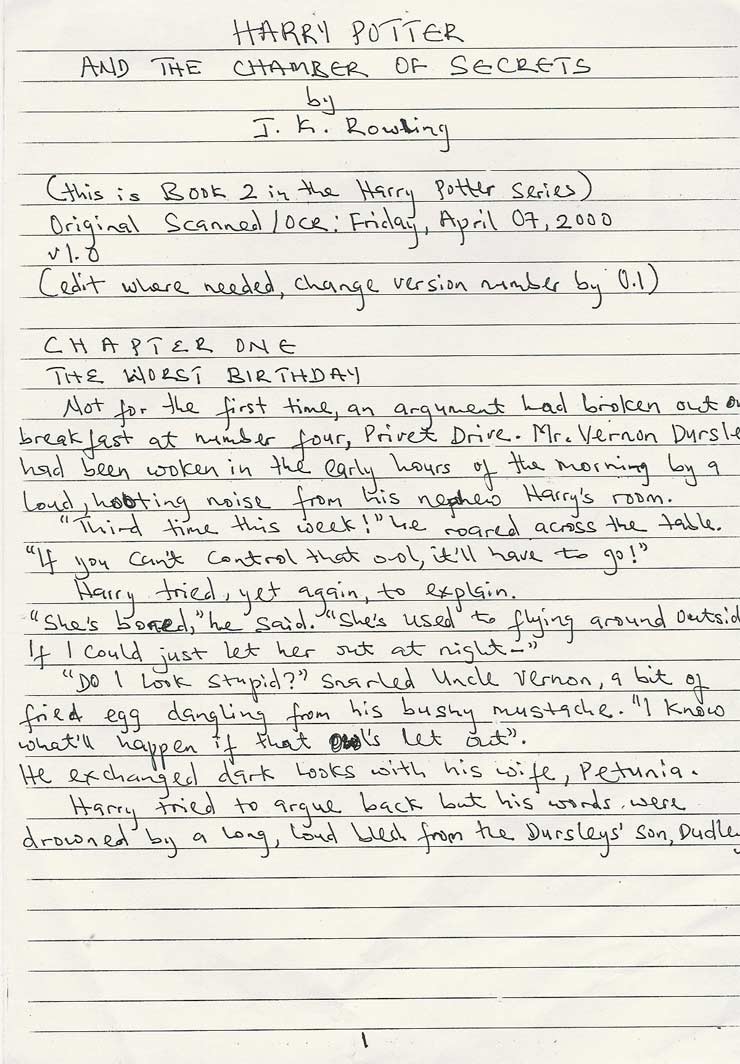 HARRY POTTER
AND THE CHAMBER OF SECRETS
by
J. K. Rowling
(this is Book 2 in the Harry Potter Series)
Original Scanned/OCR: Friday, April 07, 2000
v1.0
(edit where needed, change version number by 0.1)
CHAPTER ONE
THE WORST BIRTHDAY
Not for the first time, an argument had broken out o
breakfast at number four, Privet Drive. Mr. Vernon Dursle
had been woken in the early hours of the morning by a
loud, hooting noise from his nephew Harry's room.
"Third time this week!" he roared across the table.
"If you can't control that owl, it'll have to go!"
Harry tried, yet again, to explain.
"She's bored," he said. "She's used to flying around outsid
If I could just let her out at night-"
"Do I look stupid?" snarled Uncle Vernon, a bit of
fried egg dangling from his bushy mustache. "I know
what'll happen if that owl's let out".
He exchanged dark looks with his wife, Petunia.
Harry tried to argue back but his words were
drowned by a long, loud blech from the Dursleys' son, Dudley
1